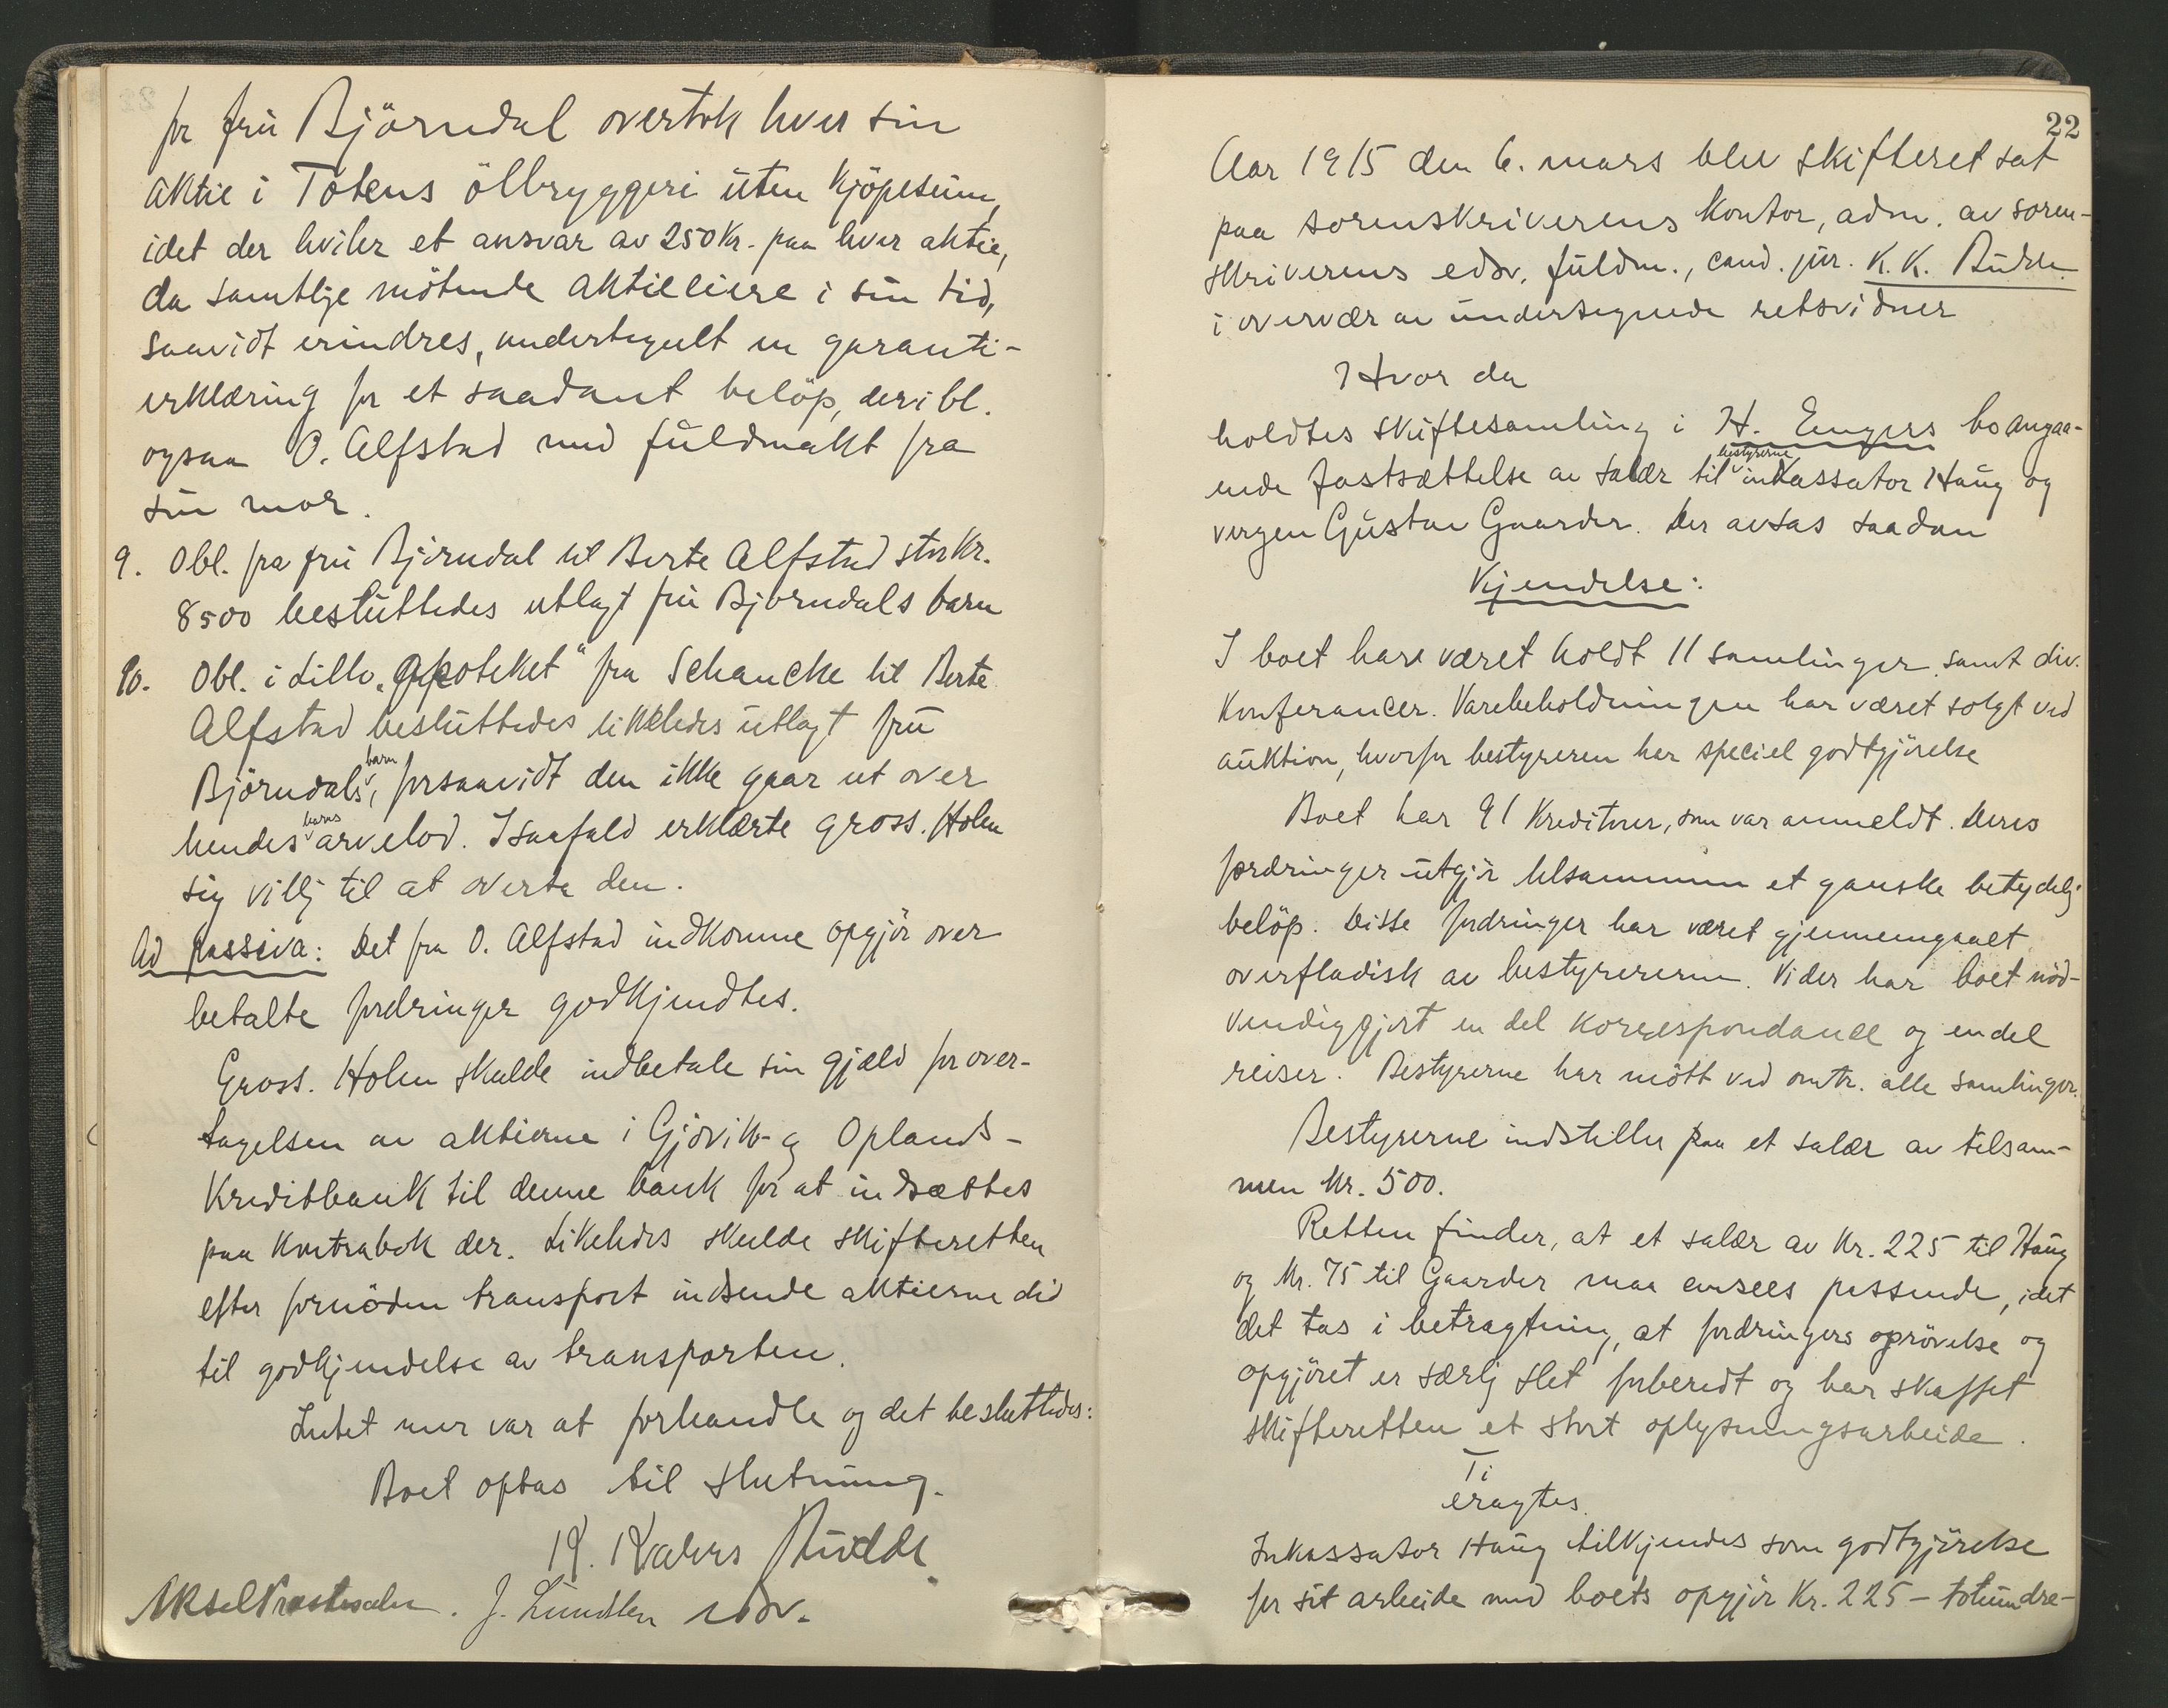 for fru Björndal overtok hver sin
aktie i Totens ölbryggeri uten kjöpesum,
idet der hviler et ansvar av 250 Kr. paa hver aktie,
da samtlige mötende aktieeiere i sin tid,
saavidt erindres, undertegnet en garanti-
erklæring for et saadant belöp, deribl.
ogsaa O. Alfstad med fuldmakt fra
sin mor.
9. Obl. fra fru Björndal til Berte Alfstad stor Kr.
8500 besluttedes utlagt fru Björndals barn
10. Obl. i Lilleh. "Apoteket" fra Schancke til Berte
Alfstad besluttedes likeledes utlagt fru
barn
Björndals, forsaavidt den ikke gaar ut over
barns
hendes arvelod. I saafald erklærte gross. Holen
sig villig til at overta den.
Ad passiva: Det fra O. Alfstad indkomne opgjör over
betalte fordringer godkjendtes.
Gross. Holen skulde indbetale sin gjæld for over-
tagelsen av aktierne i Gjövik- og Oplands-
Kreditbank til denne bank for at indsættes
paa Kontrabok der. Likeledes skulde skifteretten
efter fornöden transport indsende aktierne did
til godkjendelse av transporten.
Intet mer var at forhandle og det besluttedes:
Boet optas til slutning.
K. Kahrs Budde
Aksel J. Lundsten edsv.
22
Aar 1915 den 6. mars blev skifteret sat
paa sorenskriverens Kontor, adm. av soren-
skriverens edsv. fuldm., cand. jur. K. K. Budde
i overvær av undertegnede retsvidner
Hvor da
holdtes skiftesamling i H. Engers bo angaa-
bestyrerne
ende fastsættelse av salær til inkassator Haug og
vergen Gustav Gaarder. Der avsas saadan
Kjendelse:
I boet har været holdt 11 samlinger samt div.
Konferancer. Varebeholdningen har været solgt ved
auktion, hvorfor bestyreren har speciel godtgjörelse
Boet har 91 Kreditorer, som var anmeldt. Deres
fordringer utgjör tilsammen et ganske betydelig
belöp. Disse fordringer har været gjennemgaaet
overfladisk av bestyrererne. Vider har boet nöd-
vendiggjort en del Korrespondance og endel
reiser. Bestyrerne har mött ved omtr. alle samlinger.
Bestyrerne indstiller paa et salær av tilsam-
men Kr. 500.
Retten finder, at et salær av Kr. 225 til Haug
og Kr. 75 til Gaarder maa ansees passende, idet
det tas i betragtning, at fordringers oprövelse og
opgjöret er særlig slet forberedt og har skaffet
skifteretten et stort oplysningsarbeide.
Ti
eragtes.
Inkassator Haug tilkjendes som godtgjörelse
for sit arbeide med boets opgjör Kr. 225 - tohundre-